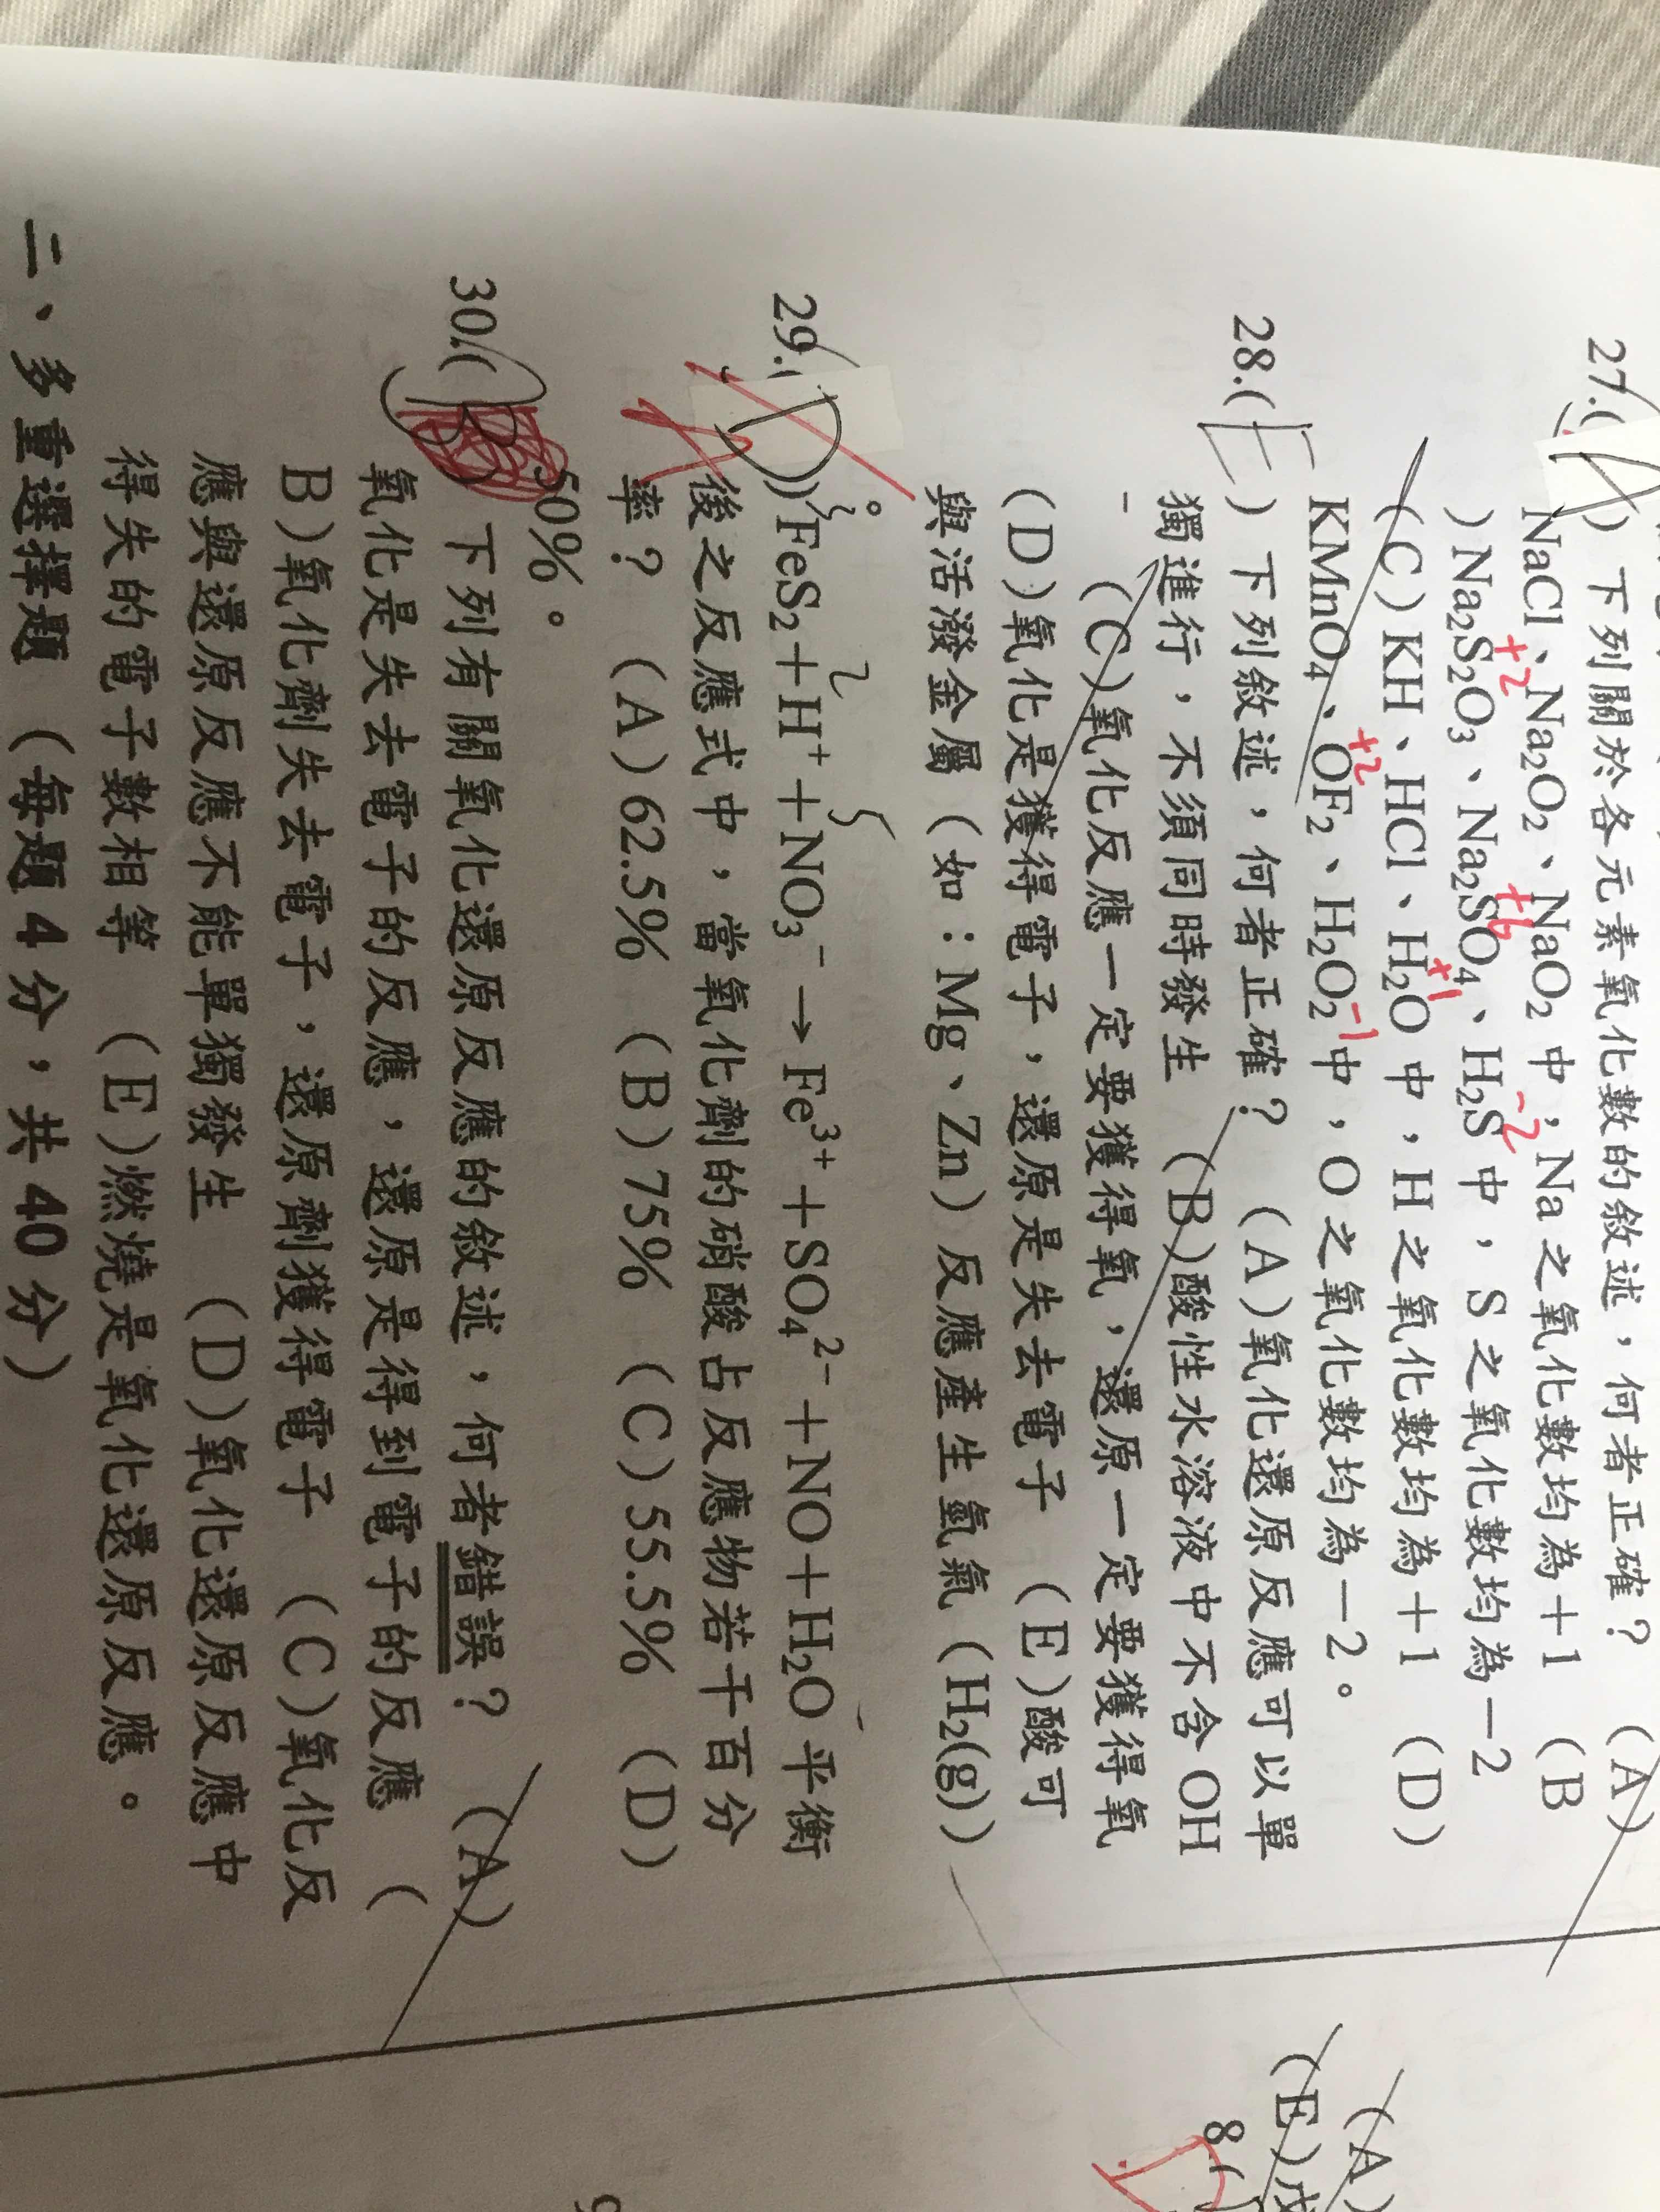 27.(A) 下列關於各元素氧化數的敘述，何者正確？ (A)
NaCl、Na2O2、NaO2 中，Na 之氧化數均為＋1 (B
+2 +6 -2
)Na2S2O3、Na2SO4、H2S 中，S 之氧化數均為－2
+1
(C)KH、HCl、H2O 中，H 之氧化數均為＋1 (D)
+2 -1
KMnO4、OF2、H2O2 中，O 之氧化數均為－2。
28.(E) 下列敘述，何者正確？ (A)氧化還原反應可以單
獨進行，不須同時發生 (B)酸性水溶液中不含 OH
－ (C)氧化反應一定要獲得氧，還原一定要獲得氧
(D)氧化是獲得電子，還原是失去電子 (E)酸可
與活潑金屬（如：Mg、Zn）反應產生氫氣（H2(g)）
29.(D) FeS2＋H+＋NO3－→Fe3+＋SO42－＋NO＋H2O 平衡
後之反應式中，當氧化劑的硝酸占反應物若干百分
率？ (A)62.5% (B)75% (C)55.5% (D)
50%。
30.(B) 下列有關氧化還原反應的敘述，何者錯誤？ (A)
氧化是失去電子的反應，還原是得到電子的反應 (
B)氧化劑失去電子，還原劑獲得電子 (C)氧化反
應與還原反應不能單獨發生 (D)氧化還原反應中
得失的電子數相等 (E)燃燒是氧化還原反應。
二、多重選擇題（每題 4 分，共 40 分）
(A)
(E)
8.(